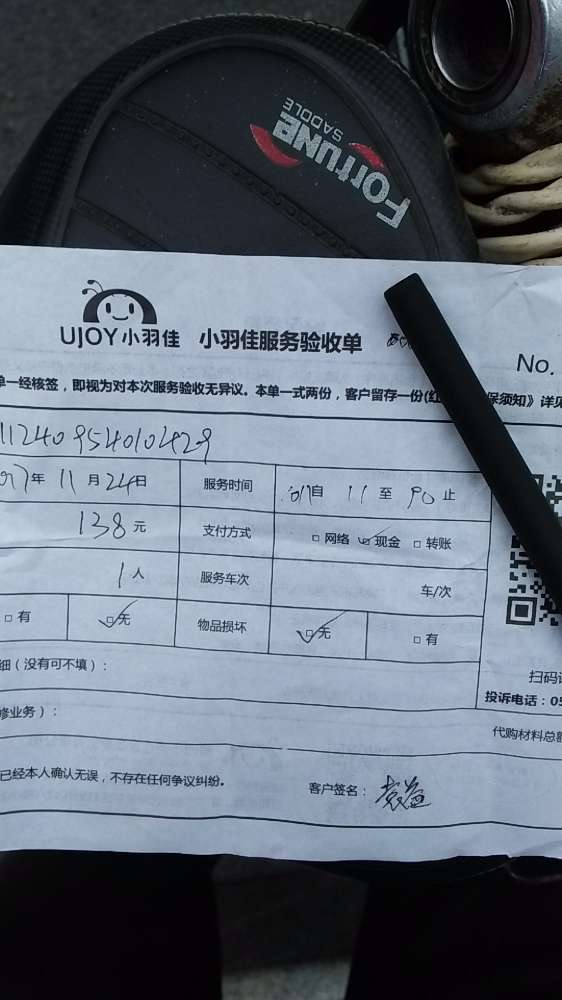 FORTUNE
SADDLE
UJOY小羽佳 小羽佳服务验收单
No.
单一经核签，即视为对本次服务验收无异议。本单一式两份，客户留存一份(红 保须知》详见
11240954010429
年 11 月 24日 服务时间 自 11 至 止
138元 支付方式 □ 网络 ☑ 现金 □ 转账
1人 服务车次 车/次
□ 有 ☑ 无 物品损坏 ☑ 无 □ 有
细（没有可不填）：
扫码
投诉电话：05
修业务）：
代购材料总额
已经本人确认无误，不存在任何争议纠纷。 客户签名：